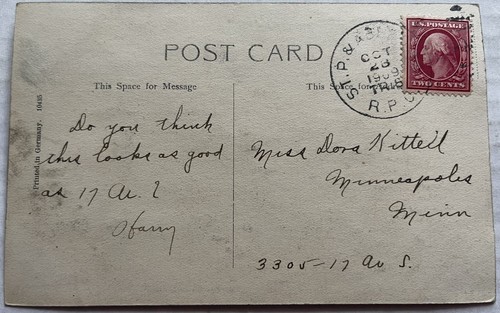 POST CARD
This Space for Message
Do you think
this looks as good
as 17 Av. ?
Harry
Printed in Germany.
This Space for
Miss Dora Kittell
Minneapolis
Minn
3305-17 Av S.
ST. P. &
OCT
28
1909
R.P.O.
U.S. POSTAGE
TWO CENTS